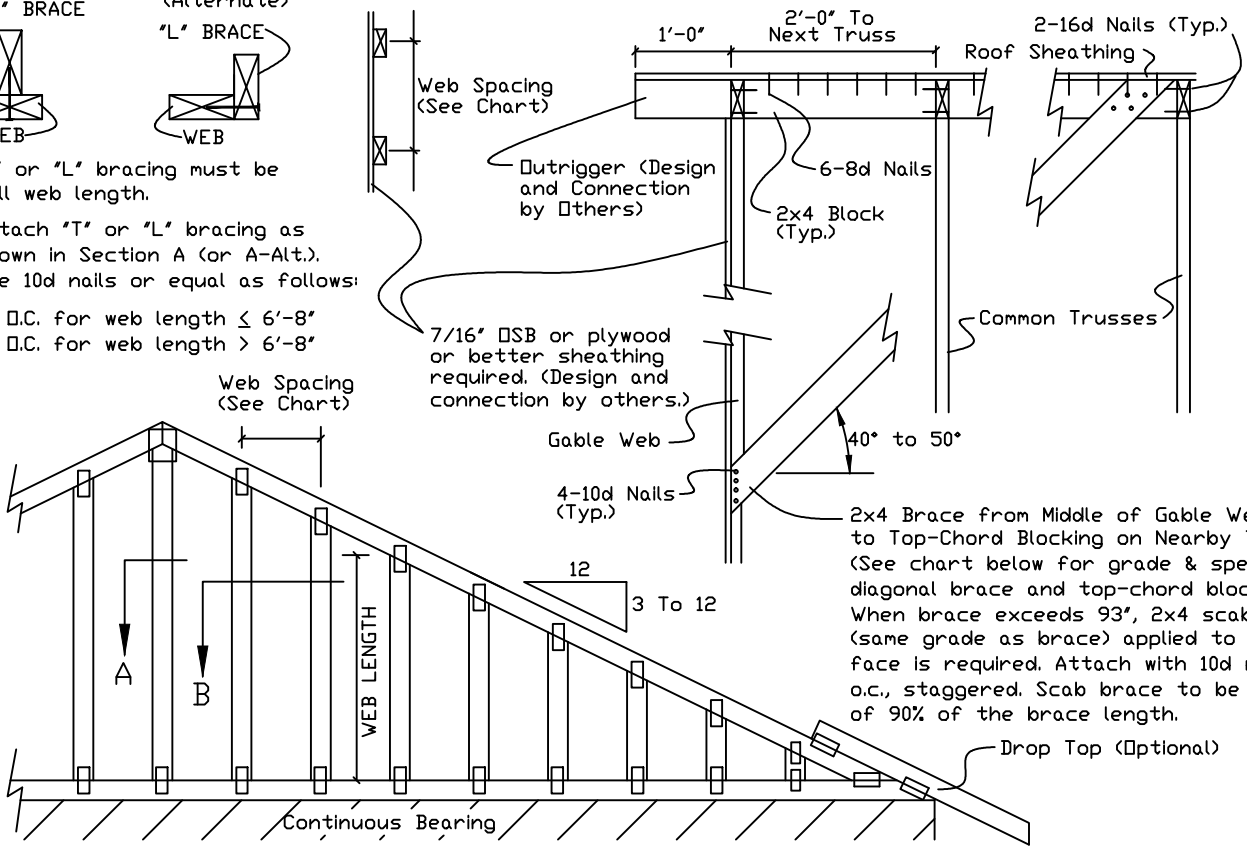 " BRACE
(Alternate)
"L" BRACE
WEB
WEB
or "L" bracing must be
web length.
"T" or "L" bracing as
in Section A (or A-Alt.).
10d nails or equal as follows:
O.C. for web length ≤ 6'-8"
O.C. for web length > 6'-8"
Web Spacing
(See Chart)
1'-0"
2'-0" To
Next Truss
2-16d Nails (Typ.)
Roof Sheathing
Outrigger (Design
and Connection
by Others)
6-8d Nails
2x4 Block
(Typ.)
Common Trusses
7/16" OSB or plywood
or better sheathing
required. (Design and
connection by others.)
Gable Web
40° to 50°
4-10d Nails
(Typ.)
2x4 Brace from Middle of Gable
to Top-Chord Blocking on Nearby
(See chart below for grade &
diagonal brace and top-chord
When brace exceeds 93", 2x4
(same grade as brace) applied to
face is required. Attach with 10d
o.c., staggered. Scab brace to be
of 90% of the brace length.
Web Spacing
(See Chart)
12
3 To 12
A
B
WEB LENGTH
Drop Top (Optional)
Continuous Bearing